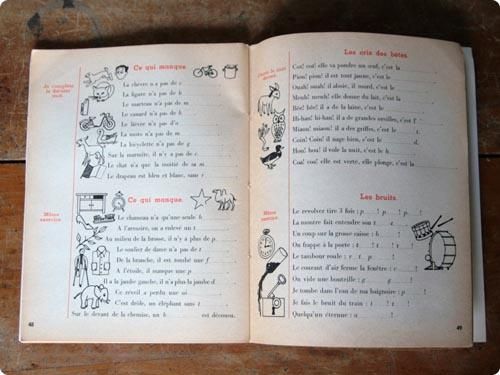 Ce qui manque.
Je complète le dernier mot.
La chèvre n'a pas de c
La figure n'a pas de b
Le marteau n'a pas de m
Le canard n'a pas de b
Le lièvre n'a pas d'o
La moto n'a pas de m
La bicyclette n'a pas de g
Sur la marmite, il n'y a pas de c
Le chat n'a que la moitié de sa m
Le drapeau est bleu et blanc, sans r
Ce qui manque.
Même exercice.
Le chameau n'a qu'une seule b
A l'armoire, on a enlevé un t
Au milieu de la brosse, il n'y a plus de p
Le soulier de danse n'a pas de t
De la branche, il est tombé une f
A l'étoile, il manque une p
Il a la jambe gauche, il n'a plus la jambe d
Ce réveil a perdu une ai
C'est drôle, un éléphant sans t
Sur le devant de la chemise, un b est décousu.
48
Les cris des bêtes.
Cot! cot! elle va pondre un œuf, c'est la
Piou! piou! il est tout jaune, c'est le
Ouah! ouah! il aboie, il mord, c'est le
Meuh! meuh! elle donne du lait, c'est la
Bêe! bêe! il a de la laine, c'est le
Hi-han! hi-han! il a de grandes oreilles, c'est l'
Miaou! miaou! il a des griffes, c'est le
Coin! Coin! il nage bien, c'est le
Hou! hou! il vole la nuit, c'est le
Coa! coa! elle est verte, elle plonge, c'est la
Les bruits.
Même exercice.
Le revolver tire 3 fois : p ! p ! p
La montre fait entendre son t
Un coup sur la grosse caisse : b
On frappe à la porte : t ! t ! t
Le tambour roule : r
Le courant d'air ferme la fenêtre : c !
On vide une bouteille : g
Je tombe dans l'eau de ma baignoire : p
Je fais le bruit du train : t ! t !
Quelqu'un éternue : a
49